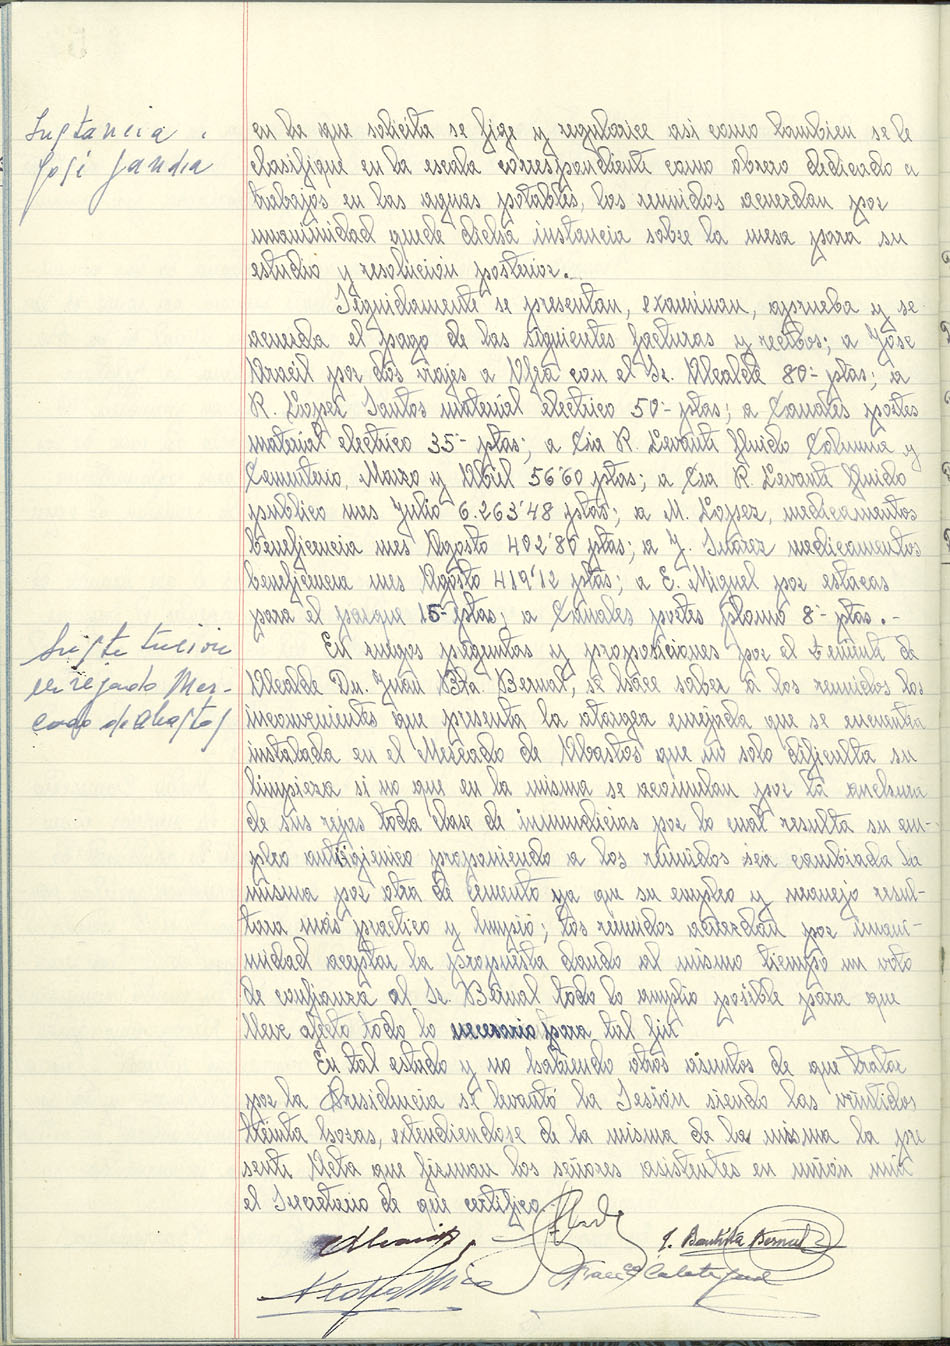 Instancia
José Gandia
en la que solicita se fije y regularice asi como tambien se le
clasifique en la escala correspondiente como obrero dedicado a
trabajos en las aguas potables, los reunidos acuerdan por
unanimidad quede dicha instancia sobre la mesa para su
estudio y resolucion posterior.
Seguidamente se presentan, examinan, aprueba y se
acuerda el pago de las siguientes facturas y recibos; a Jose
por dos viajes a con el Sr. Alcalde 80'- ptas; a
R. Lopez Santos material electrico 50'- ptas; a Canales postes
material electrico 35'- ptas; a Cia R. Levante fluido Columna y
Cementerio, Marzo y Abril 56'60 ptas; a Cia R. Levante fluido
publico mes Julio 6.263'48 ptas; a M. Lopez, medicamentos
beneficencia mes Agosto 402'85 ptas; a J. Suarez medicamentos
beneficencia mes Agosto 419'12 ptas; a E. Miguel por estacas
para el parque 15- ptas; a Canales postes plomo 8'- ptas.-
Sustitucion
enrejado Mer-
cado de abastos
En ruegos preguntas y proposiciones por el teniente de
Alcalde Dn. Juan Bta. Bernal, se hace saber a los reunidos los
inconvenientes que presenta la atargea enrejada que se encuentra
instalada en el Mercado de Abastos que no solo dificulta su
limpieza si no que en la misma se acomulan por la anchura
de sus rejas toda clase de inmundicias por lo cual resulta su em-
pleo antiigienico proponiendo a los reunidos sea cambiada la
misma por otra de cemento ya que su empleo y manejo resul-
tara más practico y limpio; los reunidos acuerdan por unani-
midad aceptar la propuesta dando al mismo tiempo un voto
de confianza al Sr. Bernal todo lo amplio posible para que
lleve afecto todo lo necesario para tal fin
En tal estado y no habiendo otros asuntos de que tratar
por la Presidencia se levantó la Sesión siendo las vintidos
treinta horas, extendiendose de la misma de la misma la pre
sente Acta que firman los señores asistentes en unión mia
el Secretario de que certifico.
J. Bautista Bernal